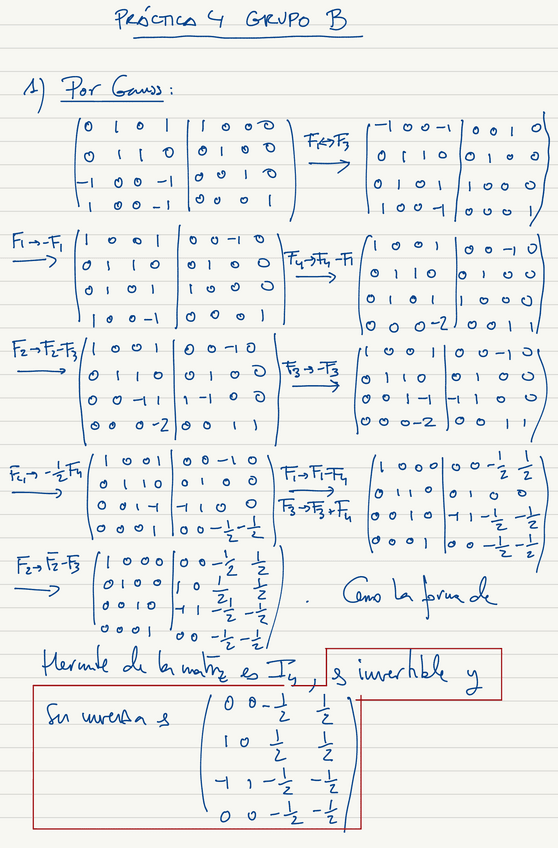 PRÁCTICA 4 GRUPO B
1) Por Gauss:
0 1 0 1 | 1 0 0 0
0 1 1 0 | 0 1 0 0
-1 0 0 -1 | 0 0 1 0
1 0 0 -1 | 0 0 0 1
F₁↔F₃
-1 0 0 -1 | 0 0 1 0
0 1 1 0 | 0 1 0 0
0 1 0 1 | 1 0 0 0
1 0 0 -1 | 0 0 0 1
F₁→-F₁
1 0 0 1 | 0 0 -1 0
0 1 1 0 | 0 1 0 0
0 1 0 1 | 1 0 0 0
1 0 0 -1 | 0 0 0 1
F₄→F₄-F₁
1 0 0 1 | 0 0 -1 0
0 1 1 0 | 0 1 0 0
0 1 0 1 | 1 0 0 0
0 0 0 -2 | 0 0 1 1
F₂→F₂-F₃
1 0 0 1 | 0 0 -1 0
0 1 1 0 | 0 1 0 0
0 0 -1 1 | 1 -1 0 0
0 0 0 -2 | 0 0 1 1
F₃→-F₃
1 0 0 1 | 0 0 -1 0
0 1 1 0 | 0 1 0 0
0 0 1 -1 | -1 1 0 0
0 0 0 -2 | 0 0 1 1
F₄→-1/2 F₄
1 0 0 1 | 0 0 -1 0
0 1 1 0 | 0 1 0 0
0 0 1 -1 | -1 1 0 0
0 0 0 1 | 0 0 -1/2 -1/2
F₁→F₁-F₄
F₃→F₃+F₄
1 0 0 0 | 0 0 -1/2 1/2
0 1 1 0 | 0 1 0 0
0 0 1 0 | -1 1 -1/2 -1/2
0 0 0 1 | 0 0 -1/2 -1/2
F₂→F₂-F₃
1 0 0 0 | 0 0 -1/2 1/2
0 1 0 0 | 1 0 1/2 1/2
0 0 1 0 | -1 1 -1/2 -1/2
0 0 0 1 | 0 0 -1/2 -1/2
. Como la forma de
Hermite de la matriz es I₄, es invertible y
su inversa es
0 0 -1/2 1/2
1 0 1/2 1/2
-1 1 -1/2 -1/2
0 0 -1/2 -1/2